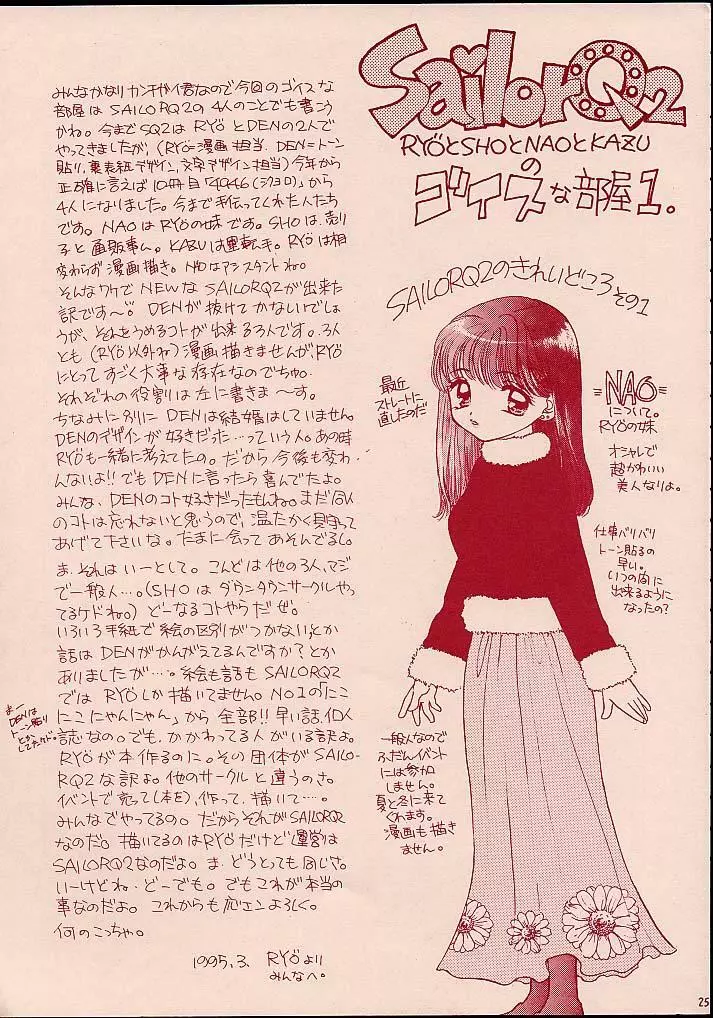 SailorQ2
RYÖとSHOとNAOとKAZU
の
ゴイスな部屋1。
みんなかなりカンチガイ君なので今回のゴイスな
部屋はSAILORQ2の4人のことでも書こう
かね。今までSQ2はRYÖとDENの2人で
やってきましたが、(RYÖ=漫画担当 DEN=トーン
貼り,裏表紙デザイン,文字デザイン担当)今年から
正確に言えば10冊目「4946(ジクヨロ)」から
4人になりました。今まで手伝ってくれた人たち
です。NAOはRYÖの妹です。SHOは、売り
子と通販事ム。KAZUは運転手。RYÖは相
変わらず漫画描き。NAOはアシスタントね。
そんなワケでNEWなSAILORQ2が出来た
訳です〜。DENが抜けてかないでしょ
うが、それをうめるコトが出来る3人です。3人
とも(RYÖ以外ね)漫画描きませんがRYÖ
にとってすごく大事な存在なのでちゅ。
それぞれの役割は左に書きま〜す。
ちなみに別にDENは結婚はしていません。
DENのデザインが好きだった…っていう人。あの時
RYÖも一緒に考えてたの。だから今後も変わ
んないよ!!でもDENに言ったら喜んでたよ。
みんな、DENのコト好きだったもんね。まだDEN
のコトは忘れないと思うので、温たかく見守って
あげて下さいな。たまに会ってあそんでるし。
ま、それはいーとして。こんどは他の3人、マジ
で一般人…。(SHOはダウンタウンサークルやっ
てるケドね。)どーなるコトやらだぜ。
いろいろ手紙で絵の区別がつかない、とか
話はDENがかんがえてるんですか?とか
ありましたが…。絵も話もSAILORQ2
ではRYÖしか描いてません。NO1の「にこ
にこにゃんにゃん」から全部!!早い話、個人
誌なの。でも、かかわってる人がいる訳よ。
RYÖが本作るのに。その団体がSAILO-
RQ2な訳よ。他のサークルと違うのさ。
イベントで売って(本を)、作って、描いて…。
みんなでやってるの。だからそれがSAILORQ2
なのだ。描いてるのはRYÖだけど運営は
SAILORQ2なのだよ。ま、どうとっても同じさ。
いーけどね、どーでも。でもこれが本当の
事なのだよ。これからも応エンよろしく。
何のこっちゃ。
1995.3. RYÖより
みんなへ。
まー
DENは
トーン貼り
とか
してたケド。
SAILORQ2のきれいどころその1
最近
ストレートに
直したのだ
=NAO=
について。
RYÖの妹
オシャレで
超かわいい
美人なりよ。
仕事バリバリ
トーン貼るの
早い。
いつの間に
出来るように
なったの?
一般人なので
ふだんイベント
には参加
しません。
夏と冬に来て
くれます。
漫画も描き
ません。
25